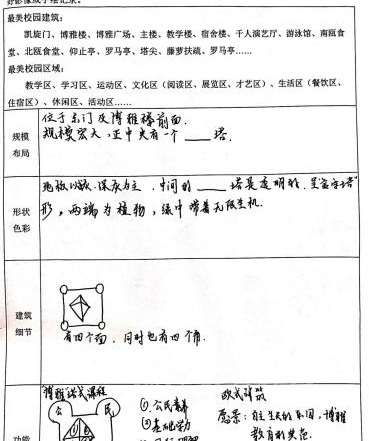 最美校园建筑：
凯旋门、博雅楼、博雅广场、主楼、教学楼、宿舍楼、千人演艺厅、游泳馆、南瓯食
堂、北瓯食堂、仰止亭、罗马亭、塔尖、藤萝扶疏、罗马亭……
最美校园区域：
教学区、学习区、运动区、文化区（阅读区、展览区、才艺区）、生活区（餐饮区、
住宿区）、休闲区、活动区……
规模
布局
位于东门及博雅楼前面.
规模宏大,正中央有一个 ___ 塔.
形状
色彩
地板以浅、深灰为主.中间的 ___ 塔是透明的.呈金字塔
形,两端为植物,绿中带着无限生机.
建筑
细节
有四个面,同时也有四个角.
功能
博雅塔式课程
公 民
①公民素养
②基础学力
欧式建筑
愿景:自主生长的乐园,博雅
教育的典范.